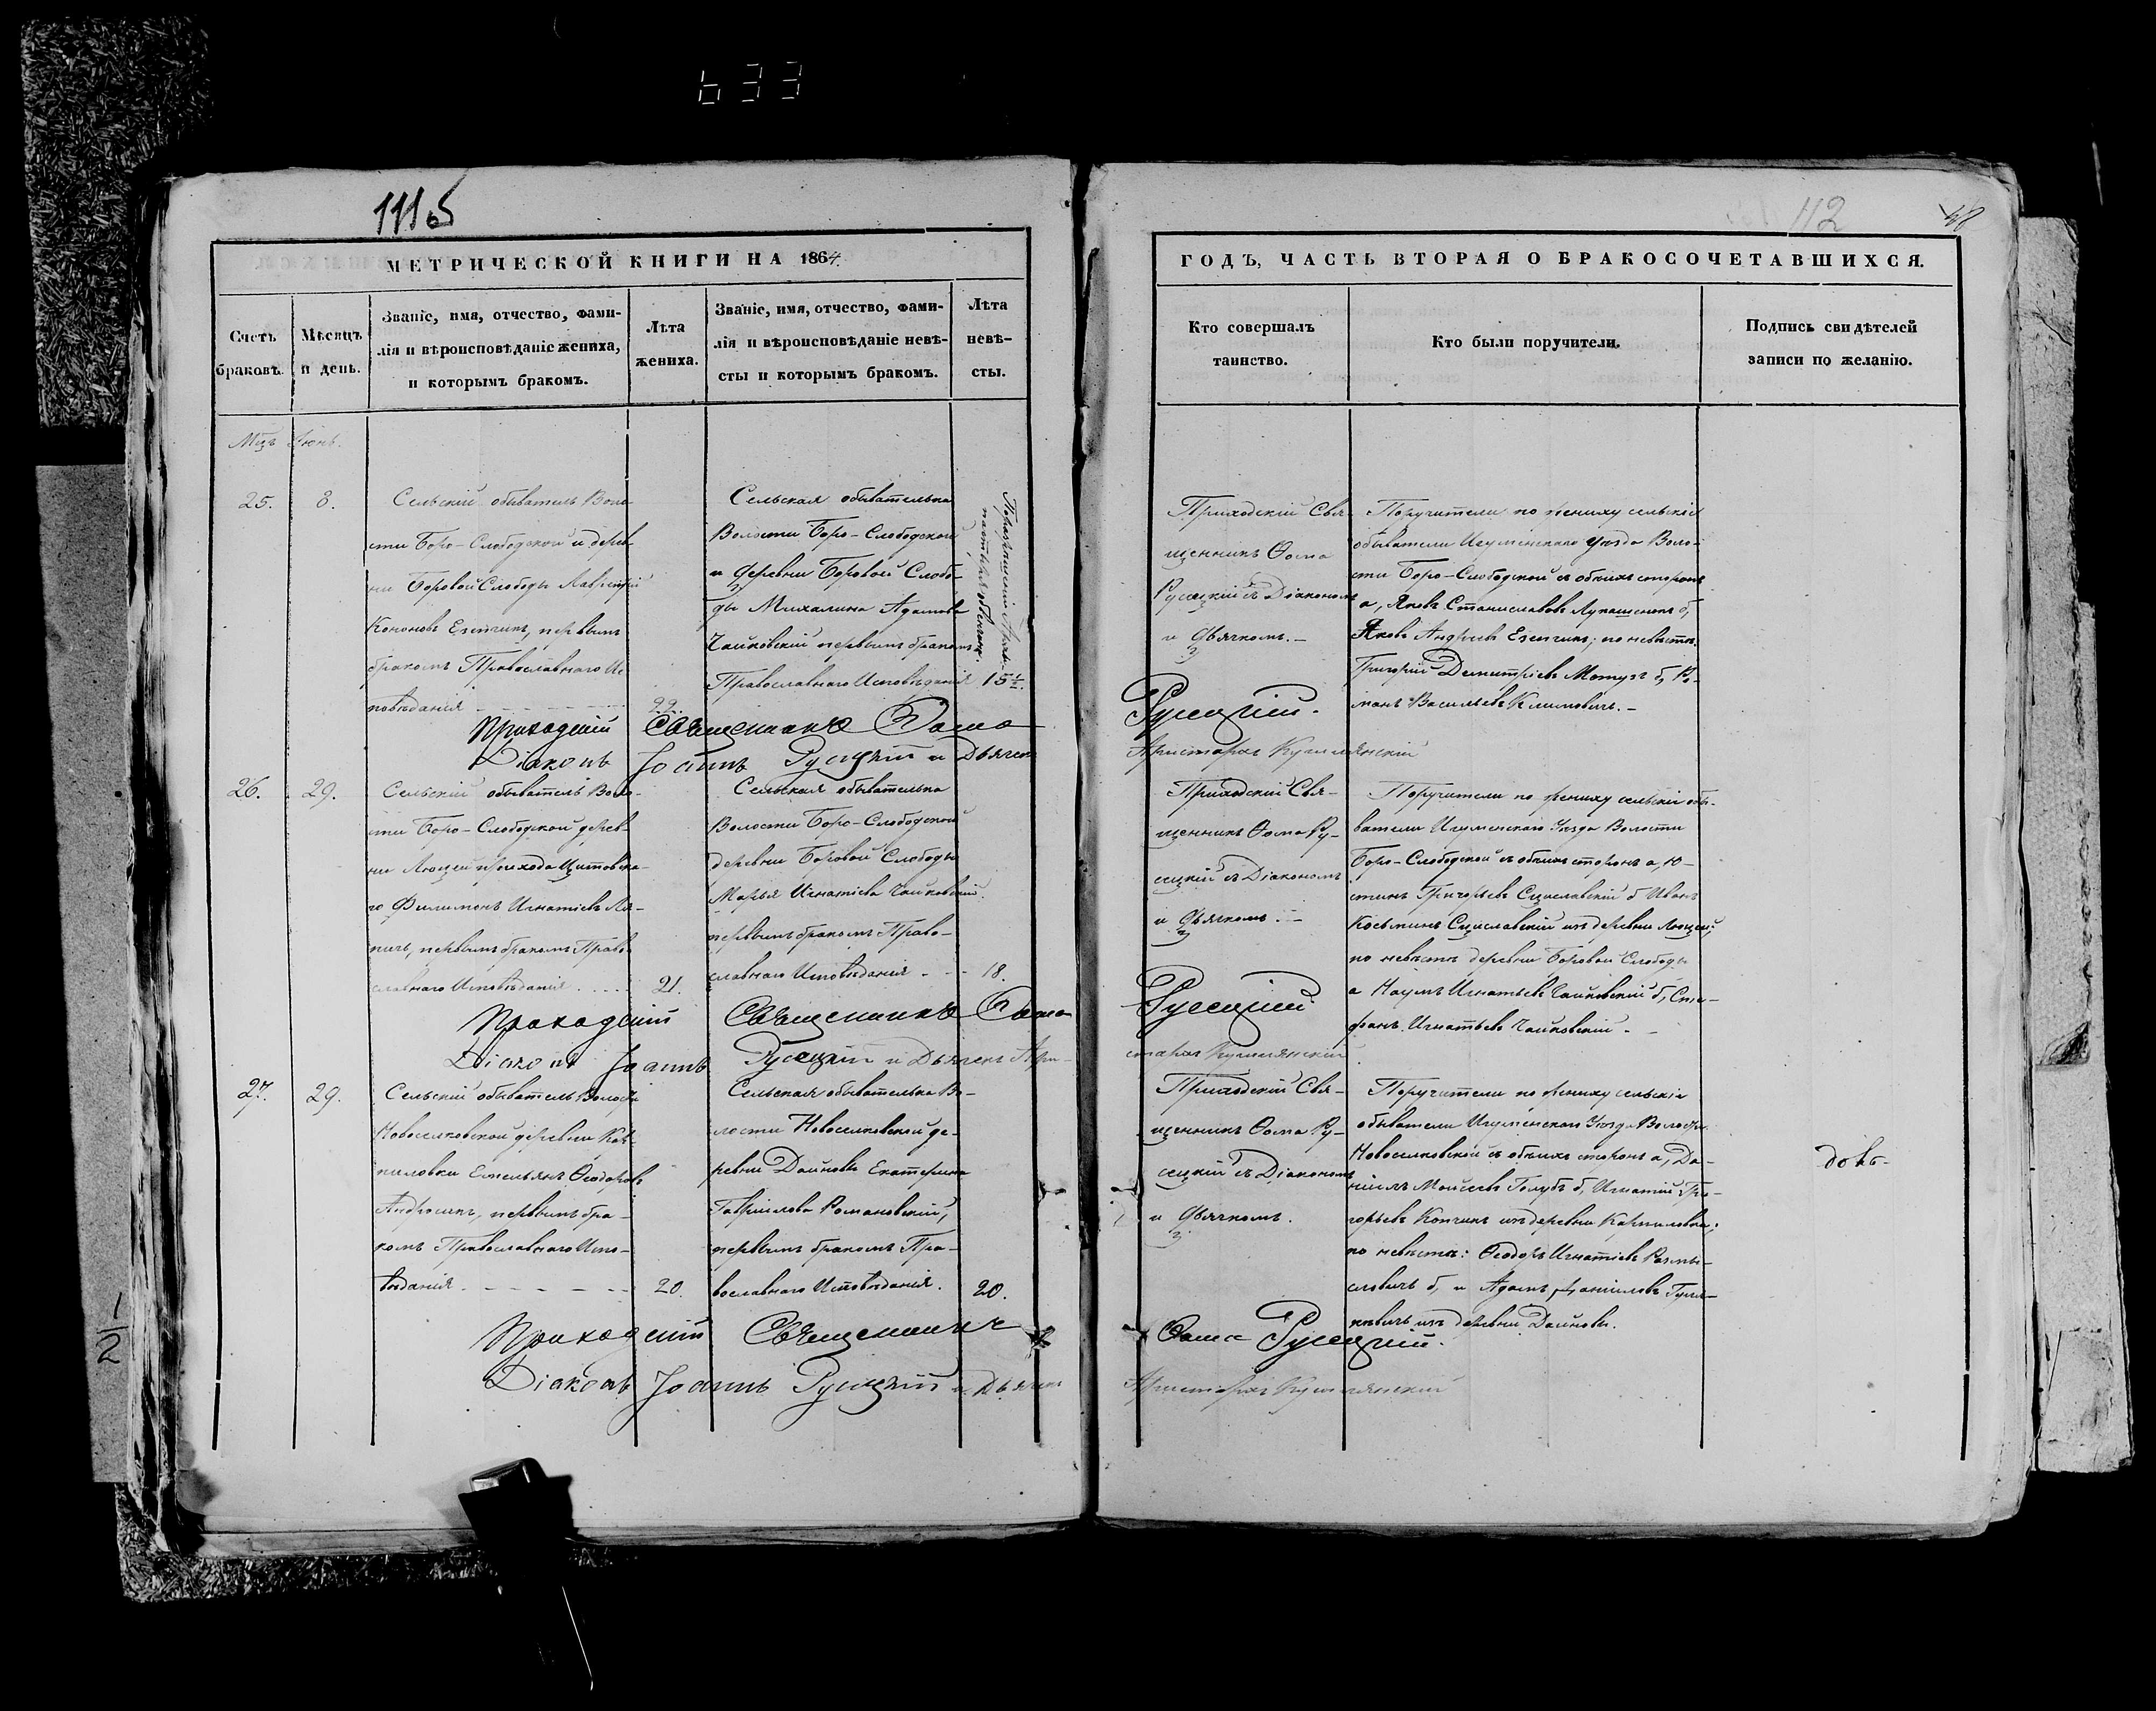 633
111об
112
48
МЕТРИЧЕСКОЙ КНИГИ НА 1864
ГОДЪ, ЧАСТЬ ВТОРАЯ О БРАКОСОЧЕТАВШИХСЯ.
Счетъ
браковъ.
Мѣсяцъ
и день.
Званіе, имя, отчество, фами-
лія и вѣроисповѣданіе жениха,
и которымъ бракомъ.
Лѣта
жениха.
Званіе, имя, отчество, фами-
лія и вѣроисповѣданіе невѣ-
сты и которымъ бракомъ.
Лѣта
невѣ-
сты.
Кто совершалъ
таинство.
Кто были поручители.
Подпись свидѣтелей
записи по желанію.
Мцъ Іюнь.
25.
8.
Сельскій обыватель Воло
сти Боро-Слободской и дерев
ни Боровой Слободы
Кононовъ Езепчикъ, первымъ
бракомъ Православнаго Ис
повѣданія
22.
Сельская обывателька
Волости Боро-Слободской
и деревни Боровой Слобо-
ды Михалина Адамова
Чайковскій первымъ бракомъ
Православнаго Исповѣданія
15½.
Приходскій Свя-
щенникъ Ѳома
Русецкій съ Діакономъ
и Дьячкомъ.-
Поручители по жениху сельскіе
обыватели Игуменскаго Уѣзда Воло-
сти Боро-Слободской съ обѣихъ сторонъ
а, Яковъ Станиславовъ Лукашенокъ б,
Яковъ Андреевъ Езепчикъ; по невѣстѣ:
Григорій Демитріевъ Мотузъ б, Ро-
манъ Васильевъ Климовичъ.-
Приходскій Священникъ Ѳома Русецкій.
Діаконъ Іоаннъ Русецкій и Дьячек Аристархъ
26.
29.
Сельскій обыватель Воло-
сти Боро-Слободской дерев-
ни Лющи прихода
го Филимонъ Игнатіевъ Ля-
пичъ, первымъ бракомъ Право-
славнаго Исповѣданія
21.
Сельская обывателька
Волости Боро-Слободской
деревни Боровой Слободы
Марья Игнатіева Чайковскій
первымъ бракомъ Право-
славнаго Исповѣданія
18.
Приходскій Свя-
щенникъ Ѳома Ру-
сецкій съ Діакономъ
и Дьячкомъ.-
Поручители по жениху сельскіе обы-
ватели Игуменскаго Уѣзда Волости
Боро-Слободской съ обѣихъ сторонъ а, Ю-
стинъ Григорьевъ Сциславскій б Иванъ
Козьминъ Сциславскій изъ деревни Лющи;
по невѣстѣ деревни Боровой Слободы
а Наумъ Игнатьевъ Чайковскій б, Сте-
фанъ Игнатьевъ Чайковскій.-
Приходскій Священникъ Ѳома Русецкій
Діаконъ Іоаннъ Русецкій и Дьячек Ари-
стархъ
27.
29.
Сельскій обыватель Волости
Новоселковской деревни Кар
пиловки Емельянъ Ѳеодоровъ
первымъ бра-
комъ Православнаго Испо-
вѣданія
20.
Сельская обывателька Во-
лости Новоселковской де-
ревни Дайнова Екатерина
Гавриилова Романовскій,
первымъ бракомъ Пра-
вославнаго Исповѣданія.
20.
Приходскій Свя-
щенникъ Ѳома Ру-
сецкій съ Діакономъ
и Дьячкомъ.
Поручители по жениху сельскіе
обыватели Игуменскаго Уѣзда Волости
Новоселковской съ обѣихъ сторонъ а, Да-
ніилъ Моисеевъ Голубъ б, Игнатій Гри-
горьевъ Копчикъ изъ деревни Карпиловки;
по невѣстѣ: Ѳеодоръ Игнатіевъ Размы-
словичъ б, и Адамъ Даниловъ
изъ деревни Дайновы.
Приходскій Священникъ Ѳома Русецкій.
Діаконъ Іоаннъ Русецкій и Дьячек Аристархъ
1/2